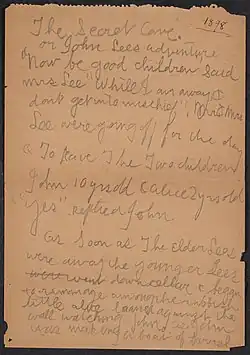 1898
The Secret Cave.
or John Lees adventure
"Now be good children said
mrs Lee" While I an away I
dont get into mischief", Mr & Mrs
Lee were going off for the day
& To leave The Two children
John 10 yrs old & alice 2 yrs old
"Yes" replied John.
As Soon as The Elder Lees
were away the younger Lees
went down cellar & began
to rummage among the rubbish
little alice leaned against the
wall watching John. John
was making a boat of barrel